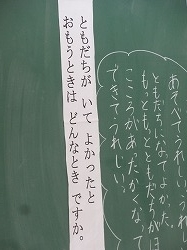 ともだちが いて よかったと
おもうときは どんなとき ですか。
あそべてうれしい。うれし
ともだちになってよかった
もっともっとともだちがほ
こころがあったかくなって
できてうれしい。